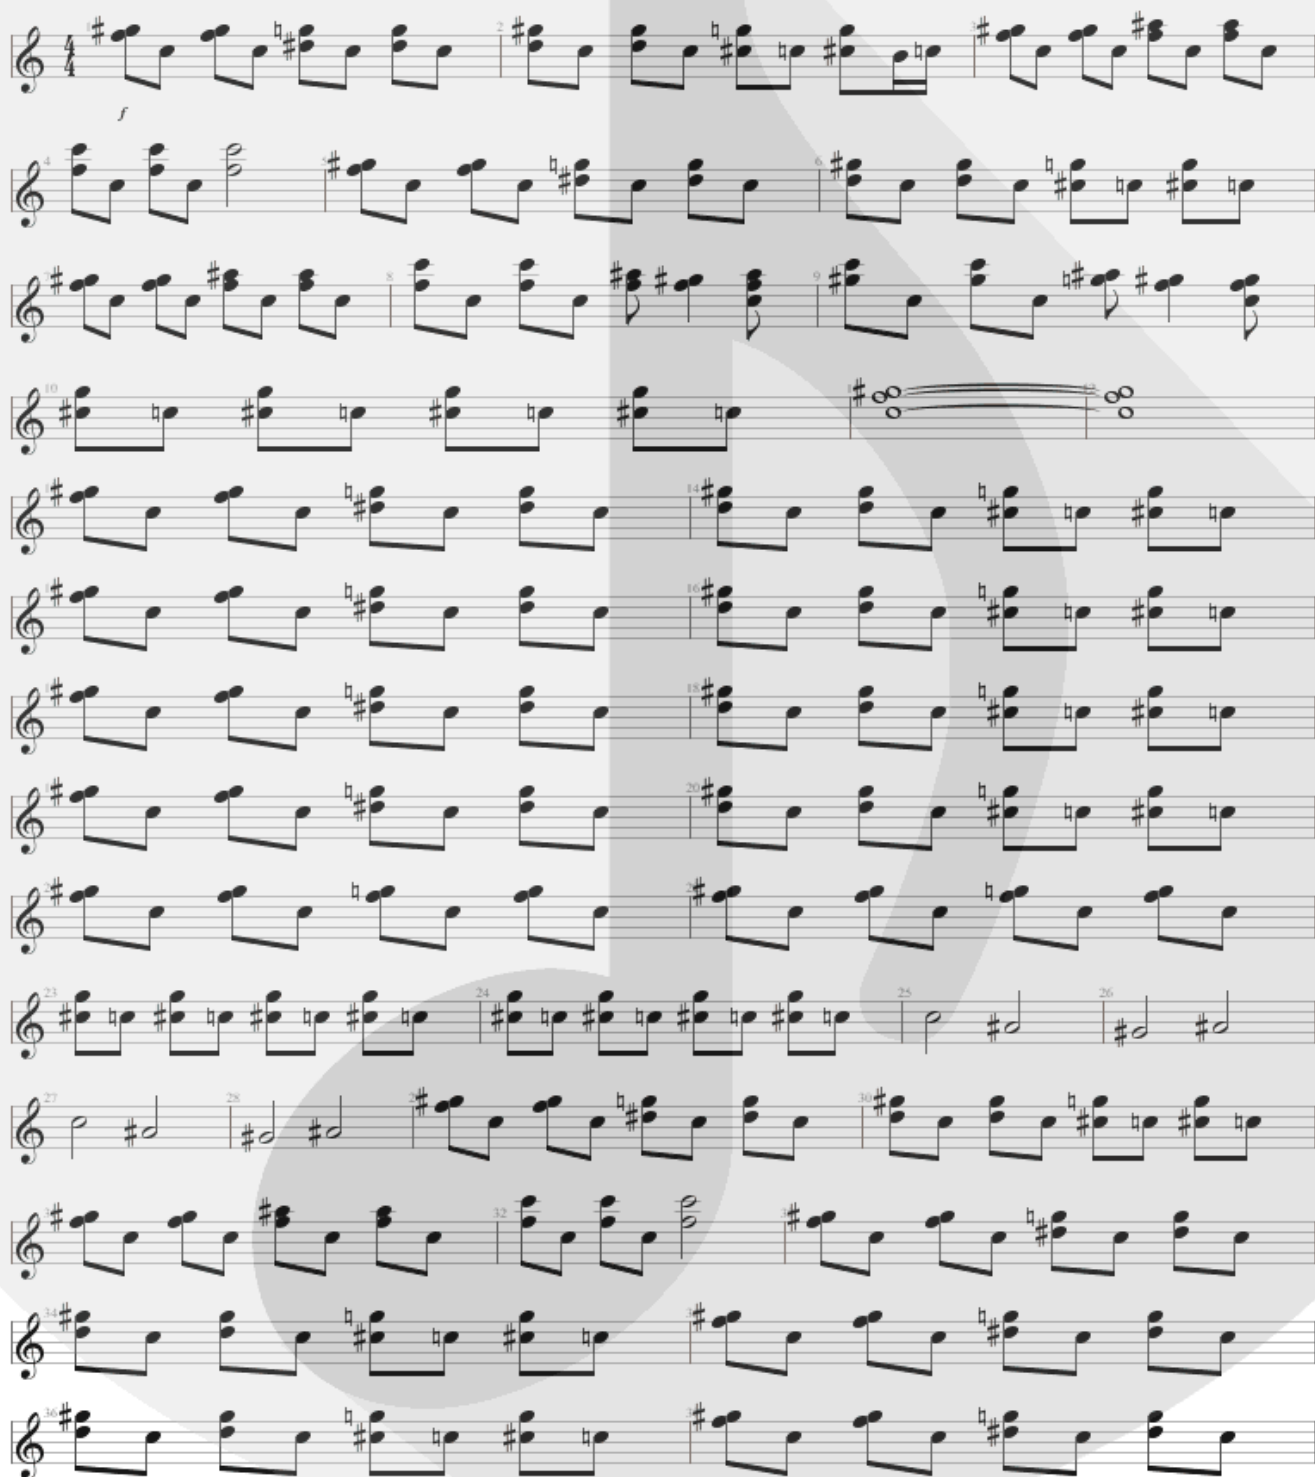 4
4
2
f
4
5
6
8
9
10
14
16
18
20
23
24
25
26
27
28
30
32
34
36